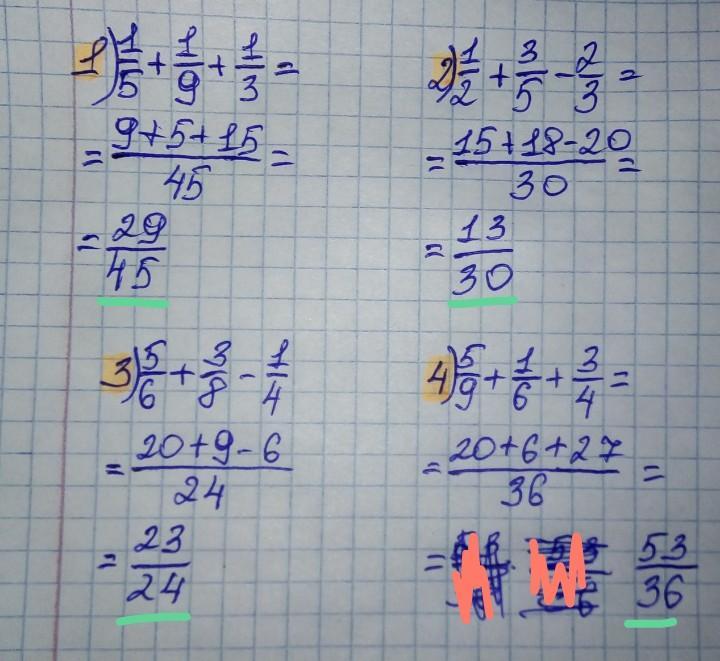 1) 1/5 + 1/9 + 1/3 =
= (9+5+15)/45 =
= 29/45
2) 1/2 + 3/5 - 2/3 =
= (15+18-20)/30 =
= 13/30
3) 5/6 + 3/8 - 1/4
= (20+9-6)/24
= 23/24
4) 5/9 + 1/6 + 3/4 =
= (20+6+27)/36 =
= 53/36